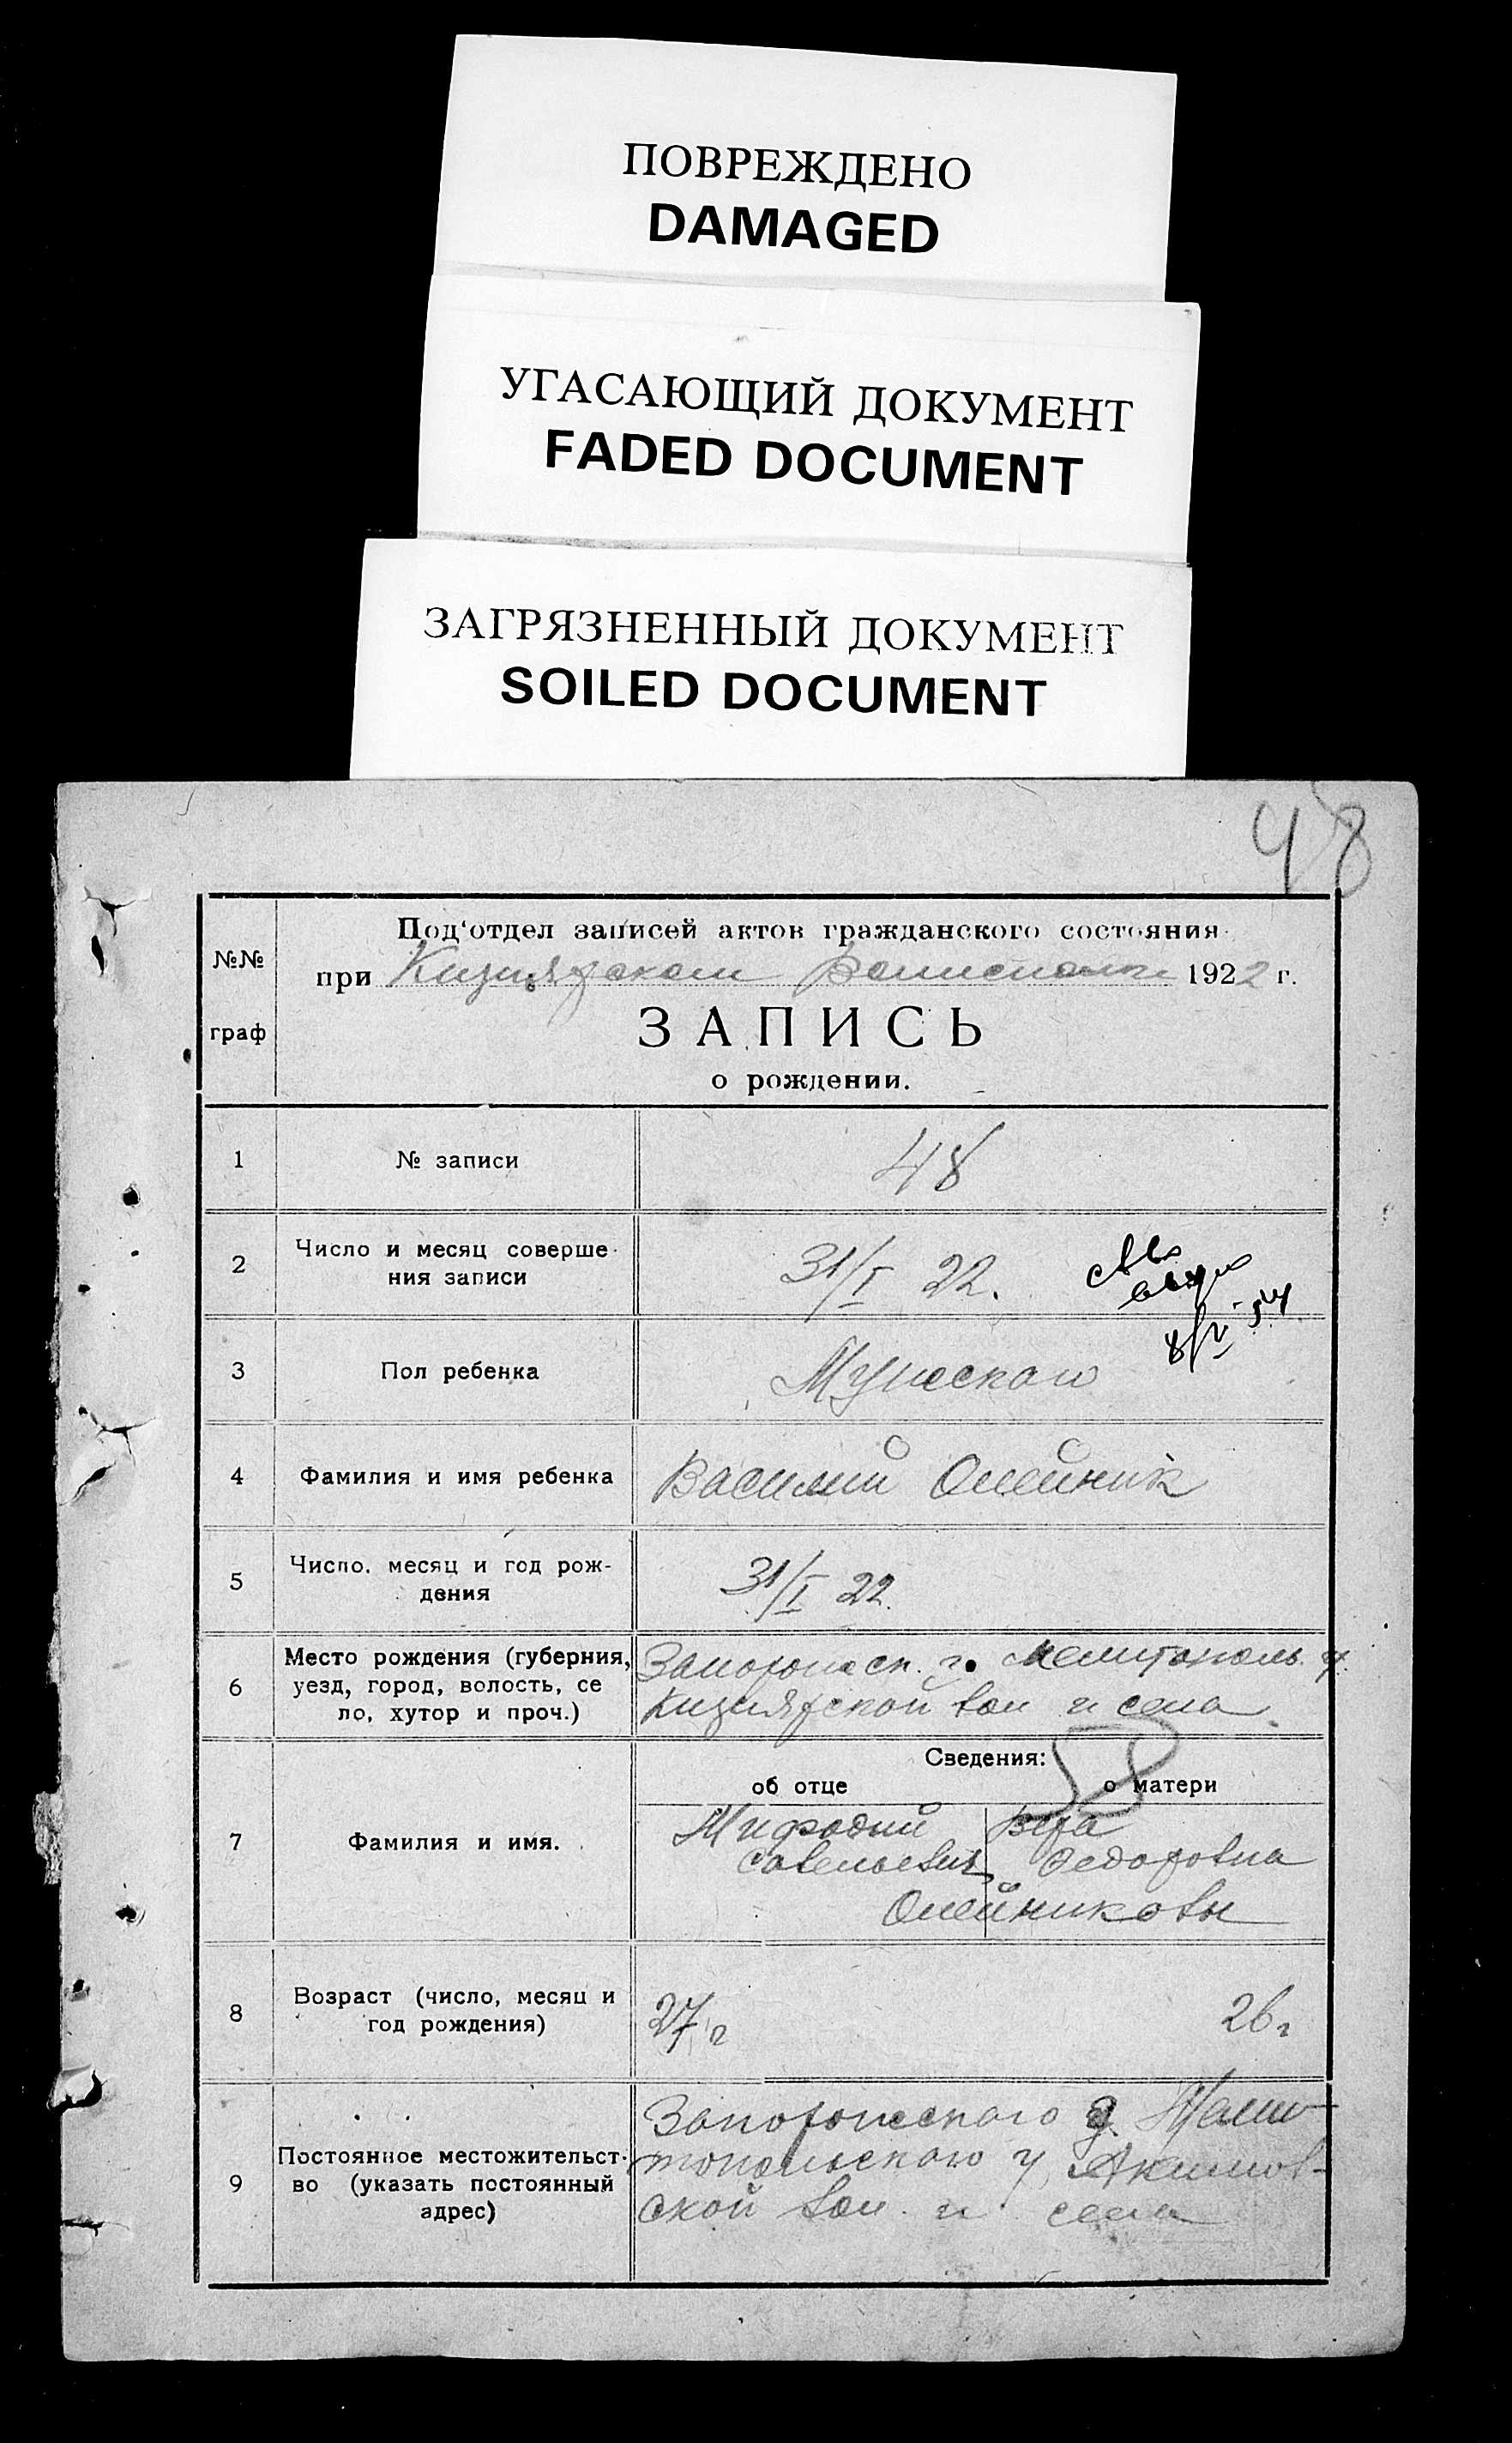 ПОВРЕЖДЕНО
DAMAGED
УГАСАЮЩИЙ ДОКУМЕНТ
FADED DOCUMENT
ЗАГРЯЗНЕННЫЙ ДОКУМЕНТ
SOILED DOCUMENT
48
№№
граф
Под'отдел записей актов гражданского состояния
при Кизиярском 1922 г.
ЗАПИСЬ
о рождении.
1
№ записи
48
2
Число и месяц соверше-
ния записи
31/I 22.
3
Пол ребенка
Мужеского
4
Фамилия и имя ребенка
Василий Олейник
5
Число, месяц и год рож-
дения
31/I 22.
6
Место рождения (губерния,
уезд, город, волость, се
ло, хутор и проч.)
Запорожск. г. Мелитополь. у.
Кизиярской вол и села
7
Фамилия и имя.
Сведения:
об отце
о матери
Мифодий
Савельевич
Вера
Федоровна
Олейниковы
8
Возраст (число, месяц и
год рождения)
27 г
26 г
9
Постоянное местожительст-
во (указать постоянный
адрес)
Запорожского г. Мели-
топольского у Акимов-
ской вол. и села